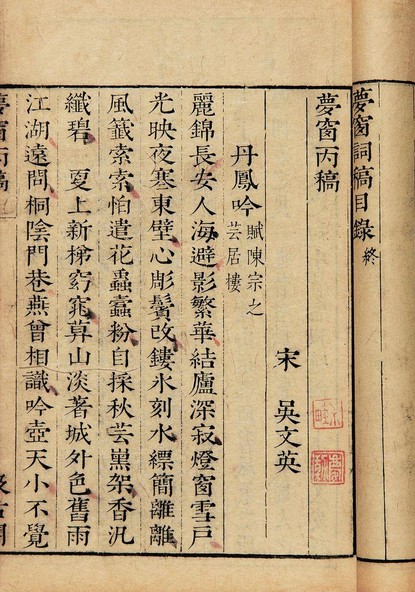 夢窗詞稿目錄 終
夢窗丙稿
宋 吳文英
丹鳳吟 賦陳宗之
芸居樓
麗錦長安人海避影繁華結廬深寂燈窗雪戶
光映夜寒東壁心彫鬢改鏤氷刻水縹簡離離
風籤索索怕遣花蟲蠹粉自採秋芸熏架香汎
纖碧 更上新梯窈窕莫山淡著城外色舊雨
江湖遠問桐陰門巷燕曾相識吟壺天小不覺
夢窗丙稿
汲古閣